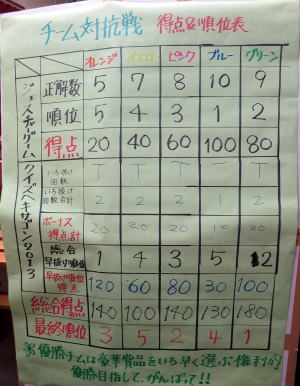 チーム対抗戦 得点&順位表
オレンジ イエロー ピンク ブルー グリーン
ジェスチャーゲーム
正解数 5 7 8 10 9
順位 5 4 3 1 2
得点 20 40 60 100 80
クイズヘキサゴン2013
いち抜け回数 T T T T T
いち抜け回数合計 2 2 2 1 2
ボーナス得点計 20 20 20 10 20
総合早抜け順位 1 4 3 5 2
早抜け順位得点 120 60 80 30 100
総合得点 140 100 140 130 180
最終順位 3 5 2 4 1
※優勝チームは豪華賞品をいち早く選ぶ権利が
優勝目指して、がんばって!!